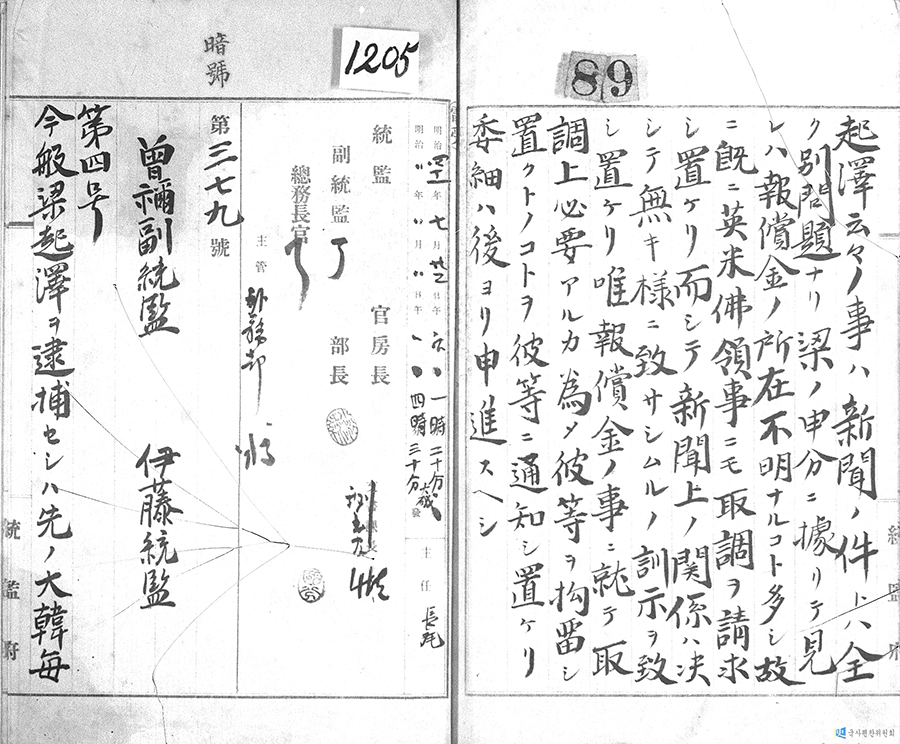 89
起澤云々ノ事ハ新聞ノ件トハ全
ク別問題ナリ梁ノ申分ニ據リテ見
レハ報償金ノ所在不明ナルコト多シ故
ニ既ニ英米佛領事ニモ取調ヲ請求
シ置ケリ而シテ新聞上ノ関係ハ决
シテ無キ様ニ致サシムルノ訓示ヲ致
シ置ケリ唯報償金ノ事ニ就テ取
調上必要アルカ為メ彼等ヲ拘畄シ
置クトノコトヲ彼等ニ通知シ置ケリ
委細ハ後ヨリ申進スヘシ
統監府
1205
暗號
明治 年七月廿二日午 一時二十分 發
明治〃年〃月〃日午〃四時三十分
主任
統監 官房長
副統監 部長
總務長官
主管 外務部
第三七九號
曾禰副統監 伊藤統監
第四号
今般梁起澤ヲ逮捕セシハ先ノ大韓每
統監府
국사편찬위원회